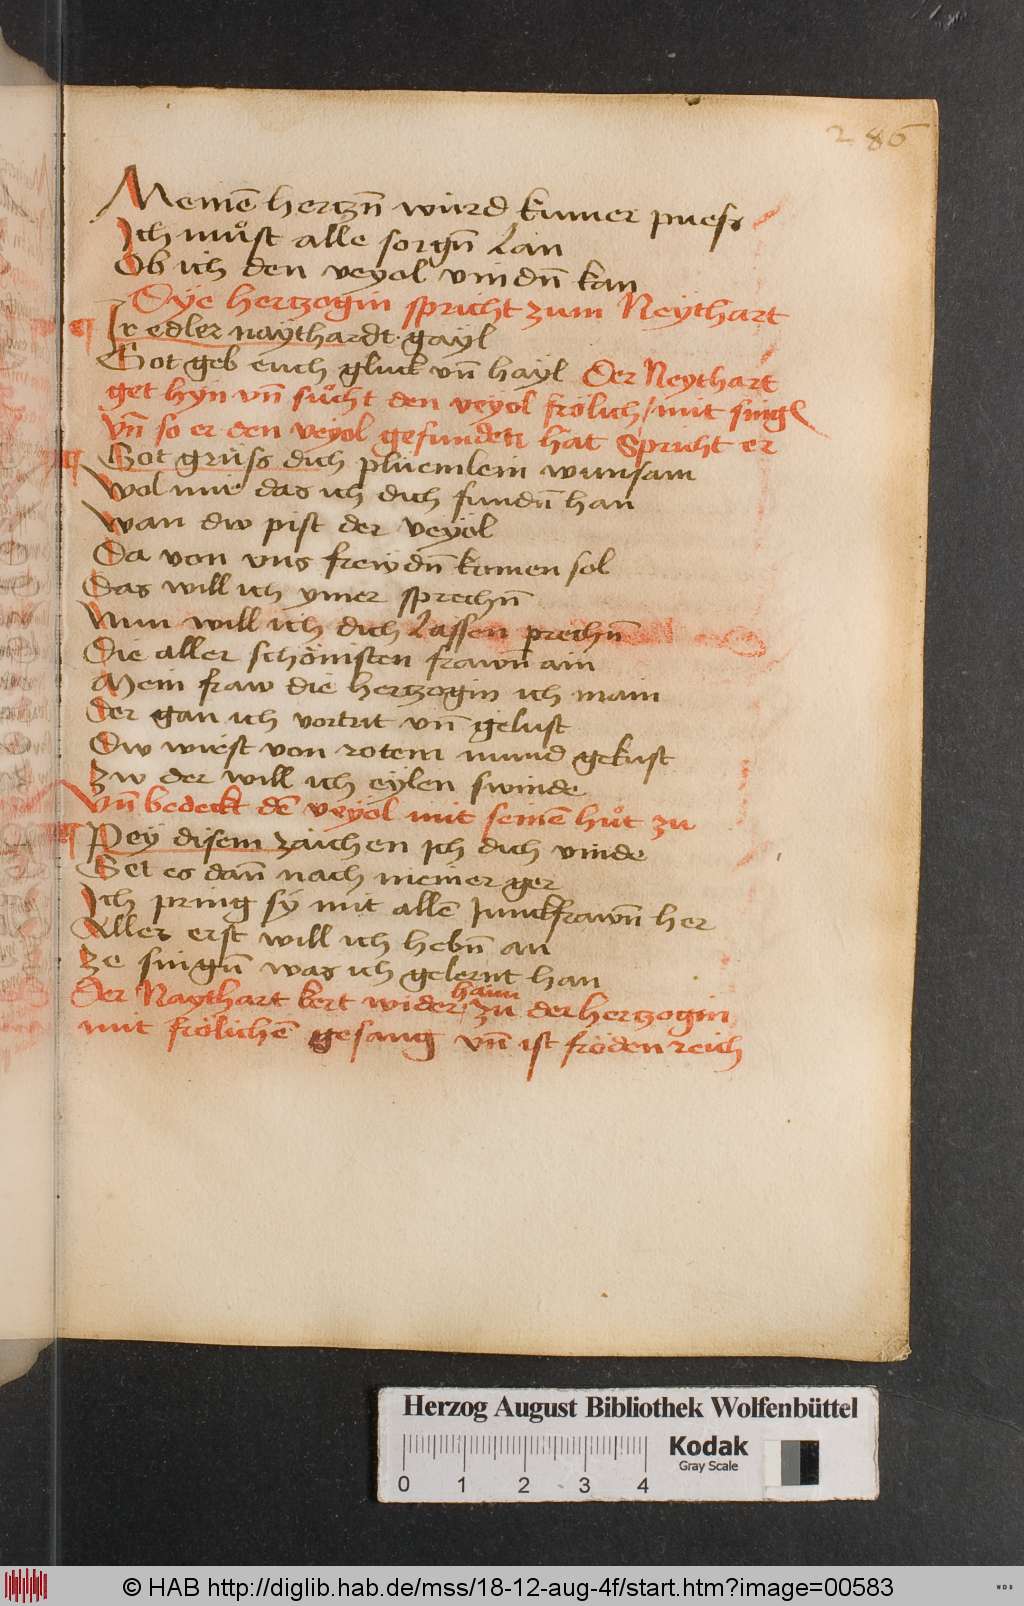 286
Meinē hertzn̄ wurd kumer puess
Ich mu̇st alle sorgn̄ Lan
Ob ich den veyol vindn̄ kan
Dye hertzogin spricht zum Neythart
Ir edler naythardt gayl
Got geb euch gluck vn̄ hayl Der Neythart
get hyn vn̄ sůcht den veyol frölich / mit singē
vn̄ so er den veyol gefunden hat Spricht er
Got grüss dich pluemlein wunsam
Wol mir das ich dich fundn̄ han
wan dw pist der veyol
Da von vns frewdn̄ komen sol
Das will ich ymer sprechn̄
Nun will ich dich Lassen prechn̄
Die aller schönisten frawn̄ ain
Mein fraw die hertzogin ich main
Der gan ich vortrit vn̄ gelust
Dw wirst von rotem mund gekust
Zw der will ich eylen swinde
Vn̄ bedeckt dē veyol mit seinē hůt zu
Pey disem zaichen ich dich vinde
Get es dan̄ nach meiner ger
Ich pring sy mit allē Junckfrawn̄ her
Alles erst will ich hebn̄ an
Ze singn̄ was ich gelernt han
Der Naythart kert wider haim zu der hertzogin
mit frölichē gesang vn̄ ist fröden reich
Herzog August Bibliothek Wolfenbüttel
Kodak
Gray Scale
0 1 2 3 4
© HAB http://diglib.hab.de/mss/18-12-aug-4f/start.htm?image=00583